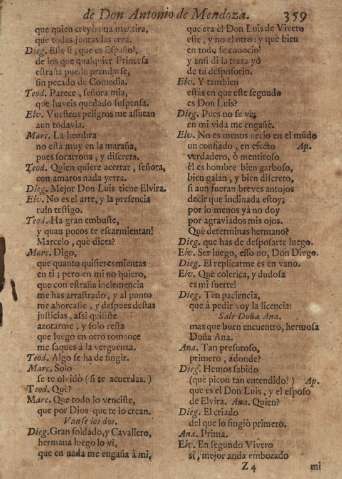 de Don Antonio de Mendoza. 359
que quien creyò una mentira,
que todas juntas las crea.
Dieg. Este si, que es Español,
de los que qualquier Princesa
estraña puede prenderse,
sin pecado de Comedia.
Teod. Parece, señora mia,
que haveis quedado suspensa.
Elv. Vuestros peligros me assustan
aun todavia.
Marc. La hombra
no està muy en la maraña,
pues socarrona, y discreta.
Teod. Quien quiere acertar, señora,
con amaros nada yerra.
Dieg. Mejor Don Luis tiene Elvira.
Elv. No es el arte, y la presencia
ruin testigo.
Teod. Ha gran embuste,
y quan pocos te escarmientan!
Marcelo, què dices?
Marc. Digo,
que quanto quisieres mientas
en ti; pero en mi no quiero,
que con estraña inclemencia
me has arrastrado, y al punto
me ahorcaste, y despues destas
justicias, assi quisiste
azotarme, y solo resta
que luego en otro romance
me saques à la verguenza.
Teod. Algo se ha de fingir.
Marc. Solo
se te olvidò (si te acuerdas.)
Teod. Què?
Marc. Que todo lo venciste,
que por Dios que te lo crean.
Vanse los dos.
Dieg. Gran soldado, y Cavallero,
hermana luego lo vì,
que en nada me engaña à mì,
que era èl Don Luis de Vivero
esse, y no el otro: y què bien
en todo se conociò!
y assi dì la traza yo
de tu desposorio.
Elv. Y tambien
estàs en que este segundo
es Don Luis?
Dieg. Pues no se vè;
en mi vida me engañè.
Elv. No es menos necio en el mũdo
un confiado, en efecto Ap.
verdadero, ò mentiroso
èl es hombre bien garboso,
bien galan, y bien discreto,
si aun fueran breves antojos
decir que inclinada estoy;
por lo menos yà no doy
por agraviados mis ojos.
Què determinas hermano?
Dieg. que has de desposarte luego.
Elv. Ser luego, esso no, Don Diego.
Dieg. El replicarme es en vano.
Elv. Què colerica, y dudosa
es mi suerte!
Dieg. Ten paciencia,
que à pedir voy la licencia:
Sale Doña Ana.
mas que buen encuentro, hermosa
Doña Ana.
Ana. Tan presuroso,
primero, adonde?
Dieg. Hemos sabido
(què picon tan entendido!) Ap.
que es èl Don Luis, y el esposo
de Elvira. Ana. Quien?
Dieg. El criado
del que lo fingiò primero.
Ana. Prima.
Elv. En segundo Vivero
sì, mejor anda embozado
Z 4 mi